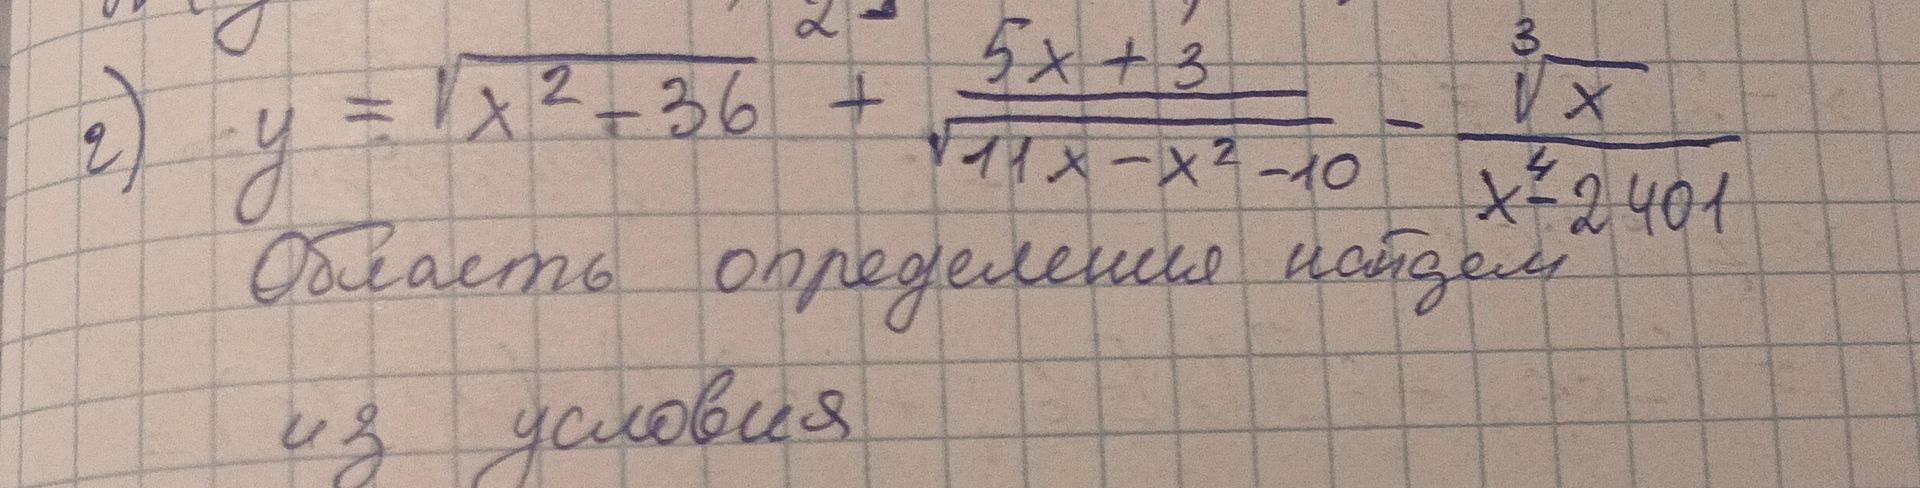 г) y = √(x² - 36) + (5x + 3)/√(11x - x² - 10) - ∛x/(x⁴ - 2401)
Область определения найдем
из условия